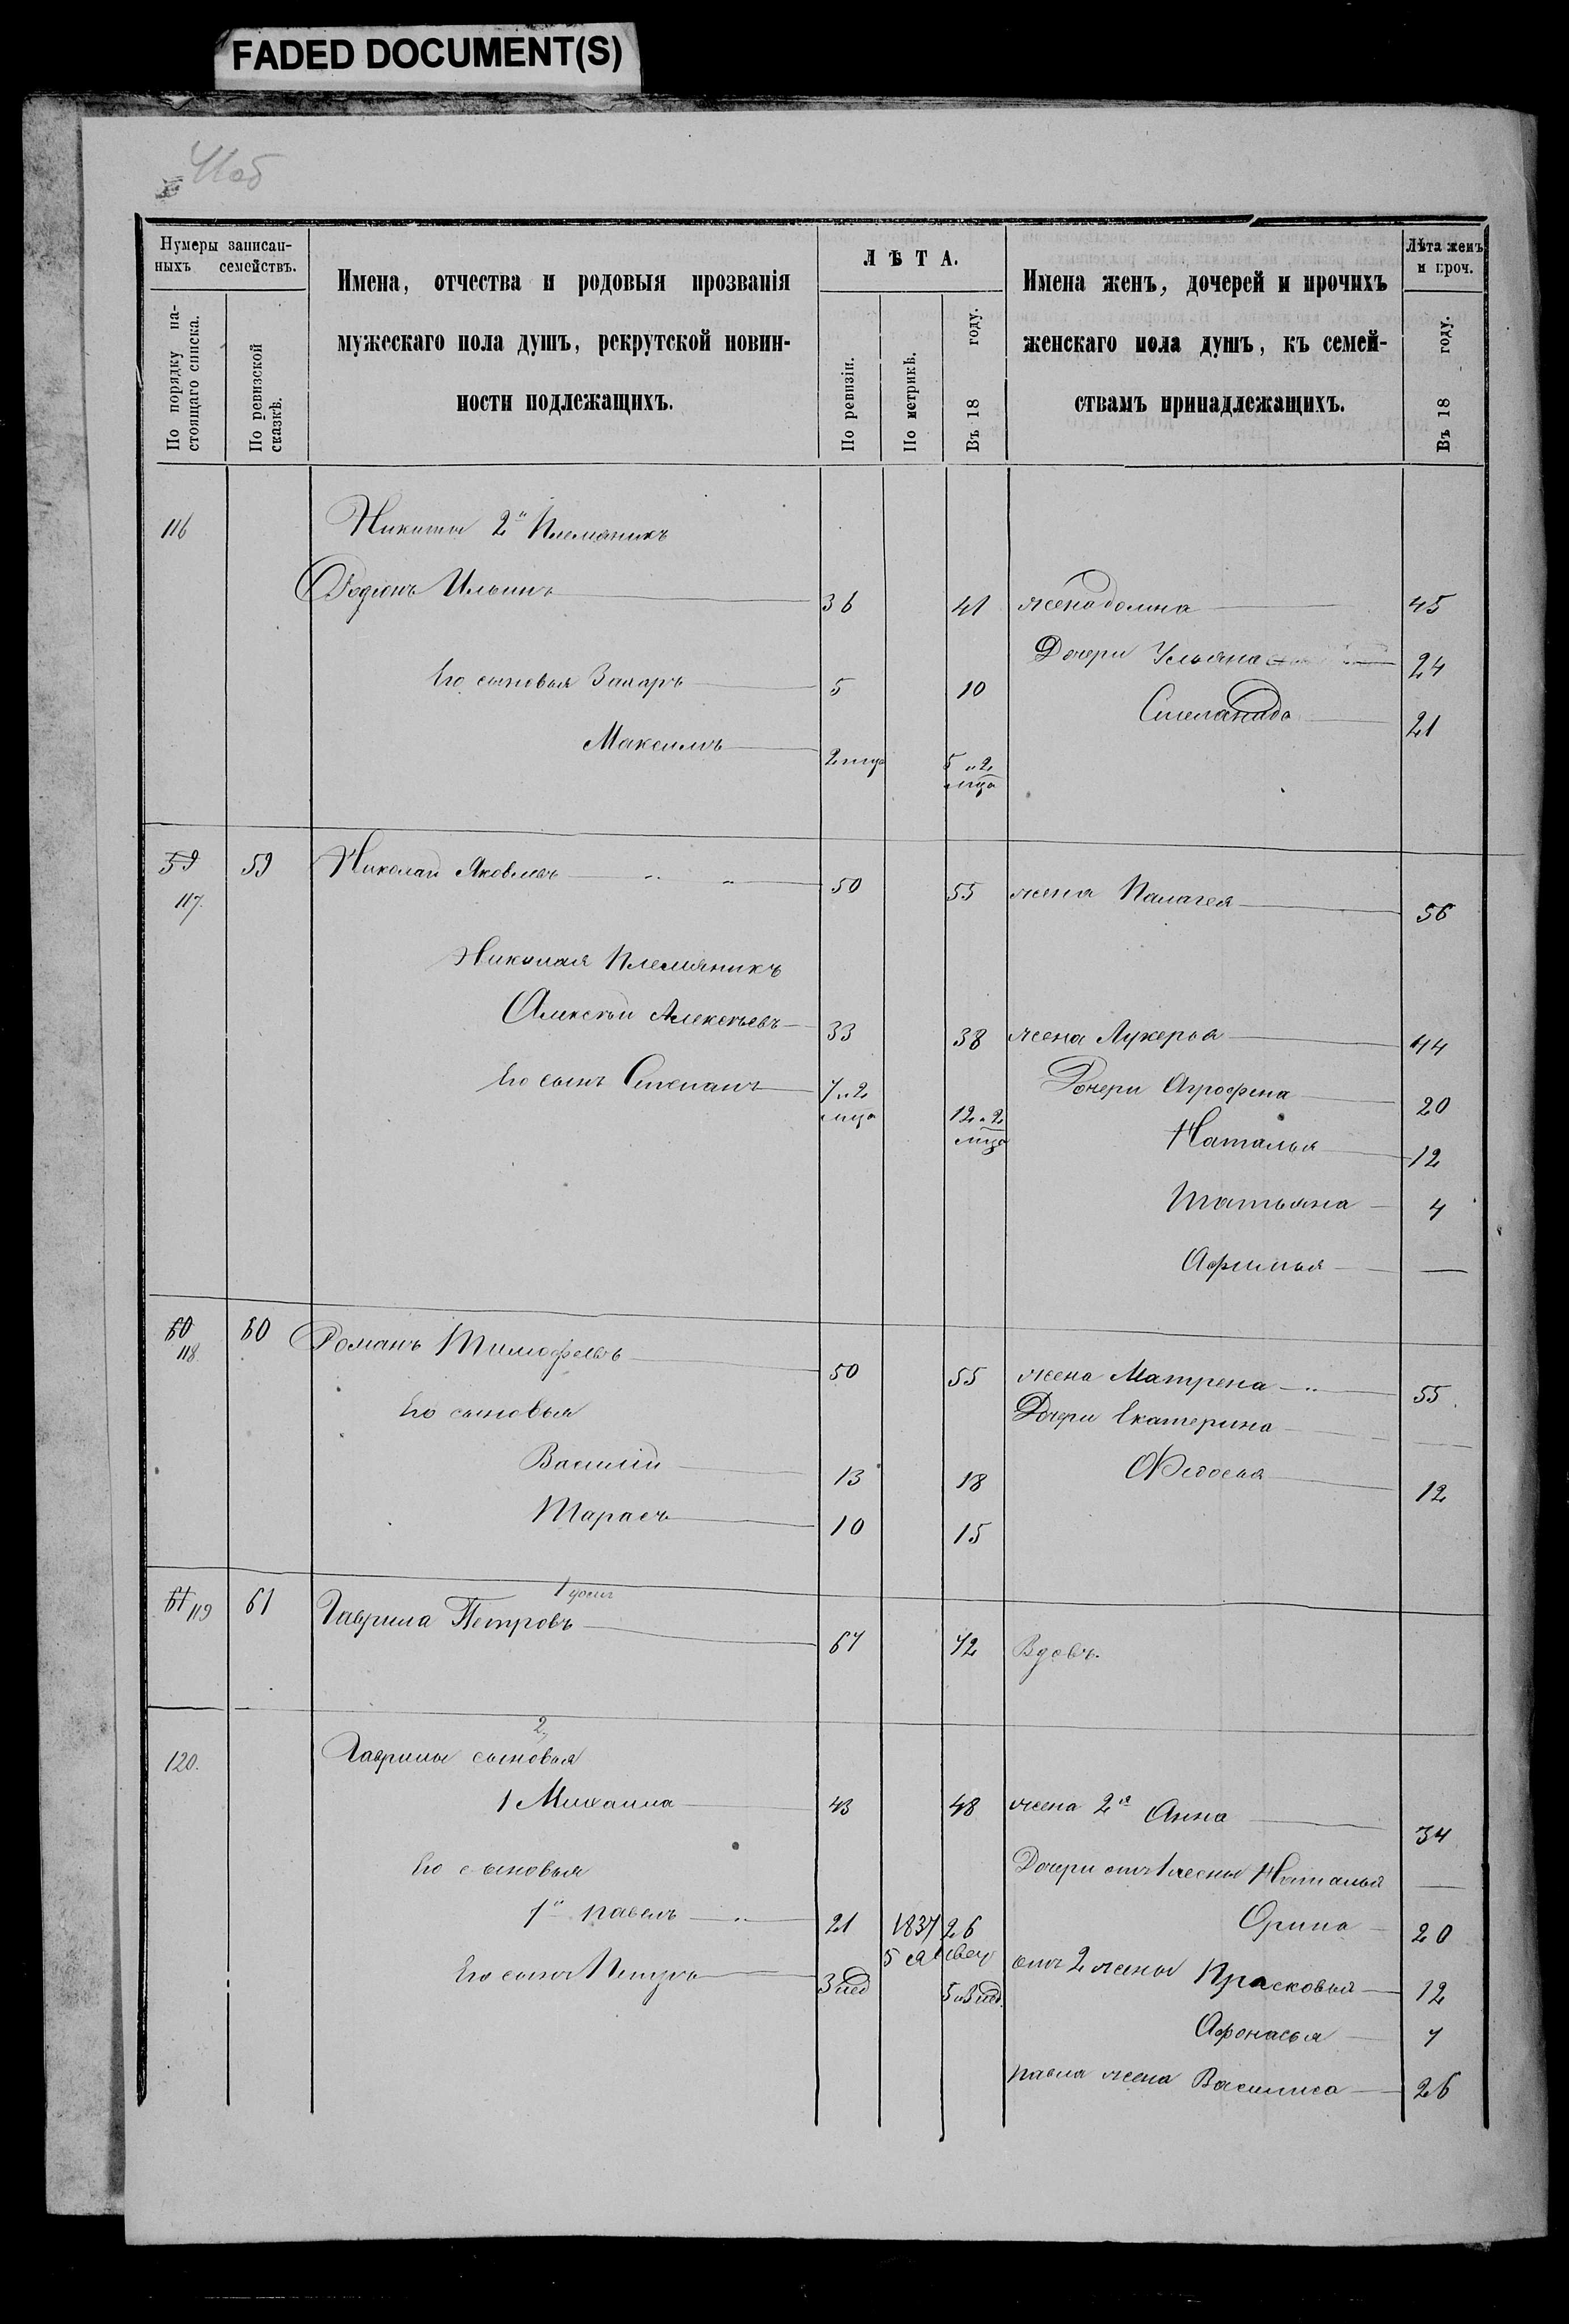 FADED DOCUMENT(S)
41об
Нумеры записан-
ныхъ семействъ.
По порядку на-
стоящаго списка.
По ревизской
сказкѣ.
Имена, отчества и родовыя прозванія
мужескаго пола душъ, рекрутской повин-
ности подлежащихъ.
ЛѢТА.
По ревизіи.
По метрикѣ.
Въ 18 году.
Имена женъ, дочерей и прочихъ
женскаго пола душъ, къ семей-
ствамъ принадлежащихъ.
Лѣта женъ
и проч.
Въ 18 году.
116 Никиты 2й Племяникъ
Родіонъ Ильинъ 36 41 жена 45
Дочери Ульяна 24
Его сыновья Захаръ 5 10
Степанида 21
Максимъ 2 мца 5 и 2
мца
59 59 Николай Яковлевъ 50 55 жена Палагея 56
117.
Николая Племяникъ
Алексѣй Алексѣевъ 33 38 жена Лукерья 44
Его сынъ Степанъ 7 и 2
мца 12 и 2
мца Дочери Агрофена 20
Наталья 12
Татьяна 4
Афимья —
60 60 Романъ Тимофѣевъ 50 55 жена Матрена 55
118.
Его сыновья Дочери Екатерина —
Василій 13 18 Федосья 12
Тарасъ 10 15
61 119 61 Гаврила Петровъ 67 72 Вдовъ.
2
120. Гаврилы сыновья
1 Михаила 43 48 жена 2я Анна 34
Его сыновья Дочери отъ 1 жены Наталья —
1й Павелъ 21 1837 26 Орина 20
5
Его сынъ Петръ 3 нед 5 и 3 нед. отъ 2 жены Прасковья 12
Афонасья 7
Павла жена Василиса 26